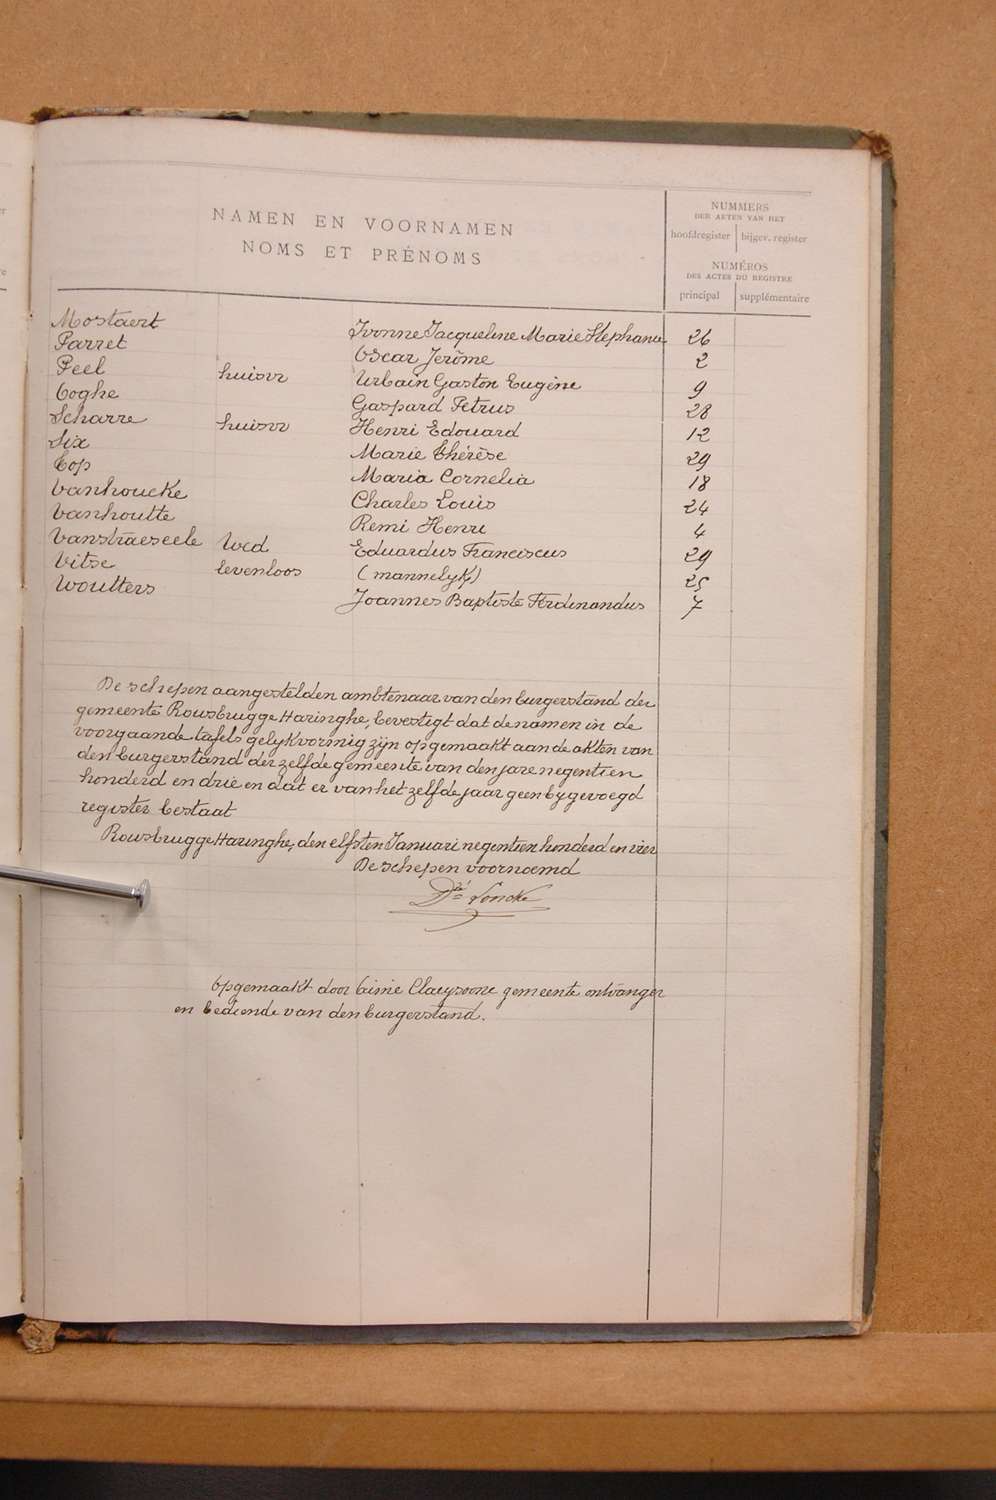 NAMEN EN VOORNAMEN
NOMS ET PRÉNOMS
NUMMERS
DER AKTEN VAN HET
hoofdregister bijgev. register
NUMÉROS
DES ACTES DU REGISTRE
principal supplémentaire
Mostaert Ivonne Jacqueline Marie Stephanie 26
Parret Oscar Jerôme 2
Peel huisvr Urbain Gaston Eugène 9
Coghe Gaspard Petrus 28
Scharre huisvr Henri Edouard 12
Six Marie Thérèse 29
Top Maria Cornelia 18
Vanhoucke Charles Louis 24
Vanhoutte Remi Henri 4
Vanstraeseele Wed Eduardus Franciscus 29
Vitse levenloos (mannelyk) 25
Woutters Joannes Baptiste Ferdinandus 7
De schepen aangestelden ambtenaar van den burgerstand der
gemeente Rousbrugge Haringhe, bevestigt dat de namen in de
voorgaande tafels gelykvormig zijn opgemaakt aan de akten van
den burgerstand der zelfde gemeente van den jare negentien
honderd en drie en dat er van het zelfde jaar geen bygevoegd
register bestaat
Rousbrugge Haringhe, den elfsten Januari negentien honderd en vier
De schepen voornoemd
Loncke
Opgemaakt door Cimie Claeysoone gemeente ontvanger
en bediende van den burgerstand.